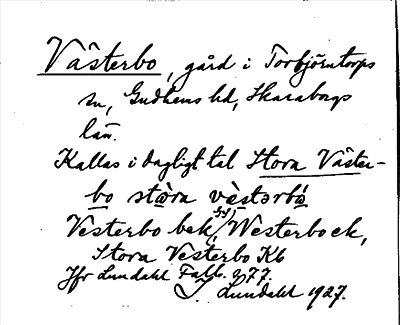 Västerbo, gård i Torbjörntorps
sn, Gudhems hd, Skaraborgs
län.
Kallas i dagligt tal Stora Väster-
bo stora västərbo
Vesterbo bek, Westerboek,
Stora Vesterbo Kb
Jfr Lundahl Falb. s. 77.
I. Lundahl 1927.